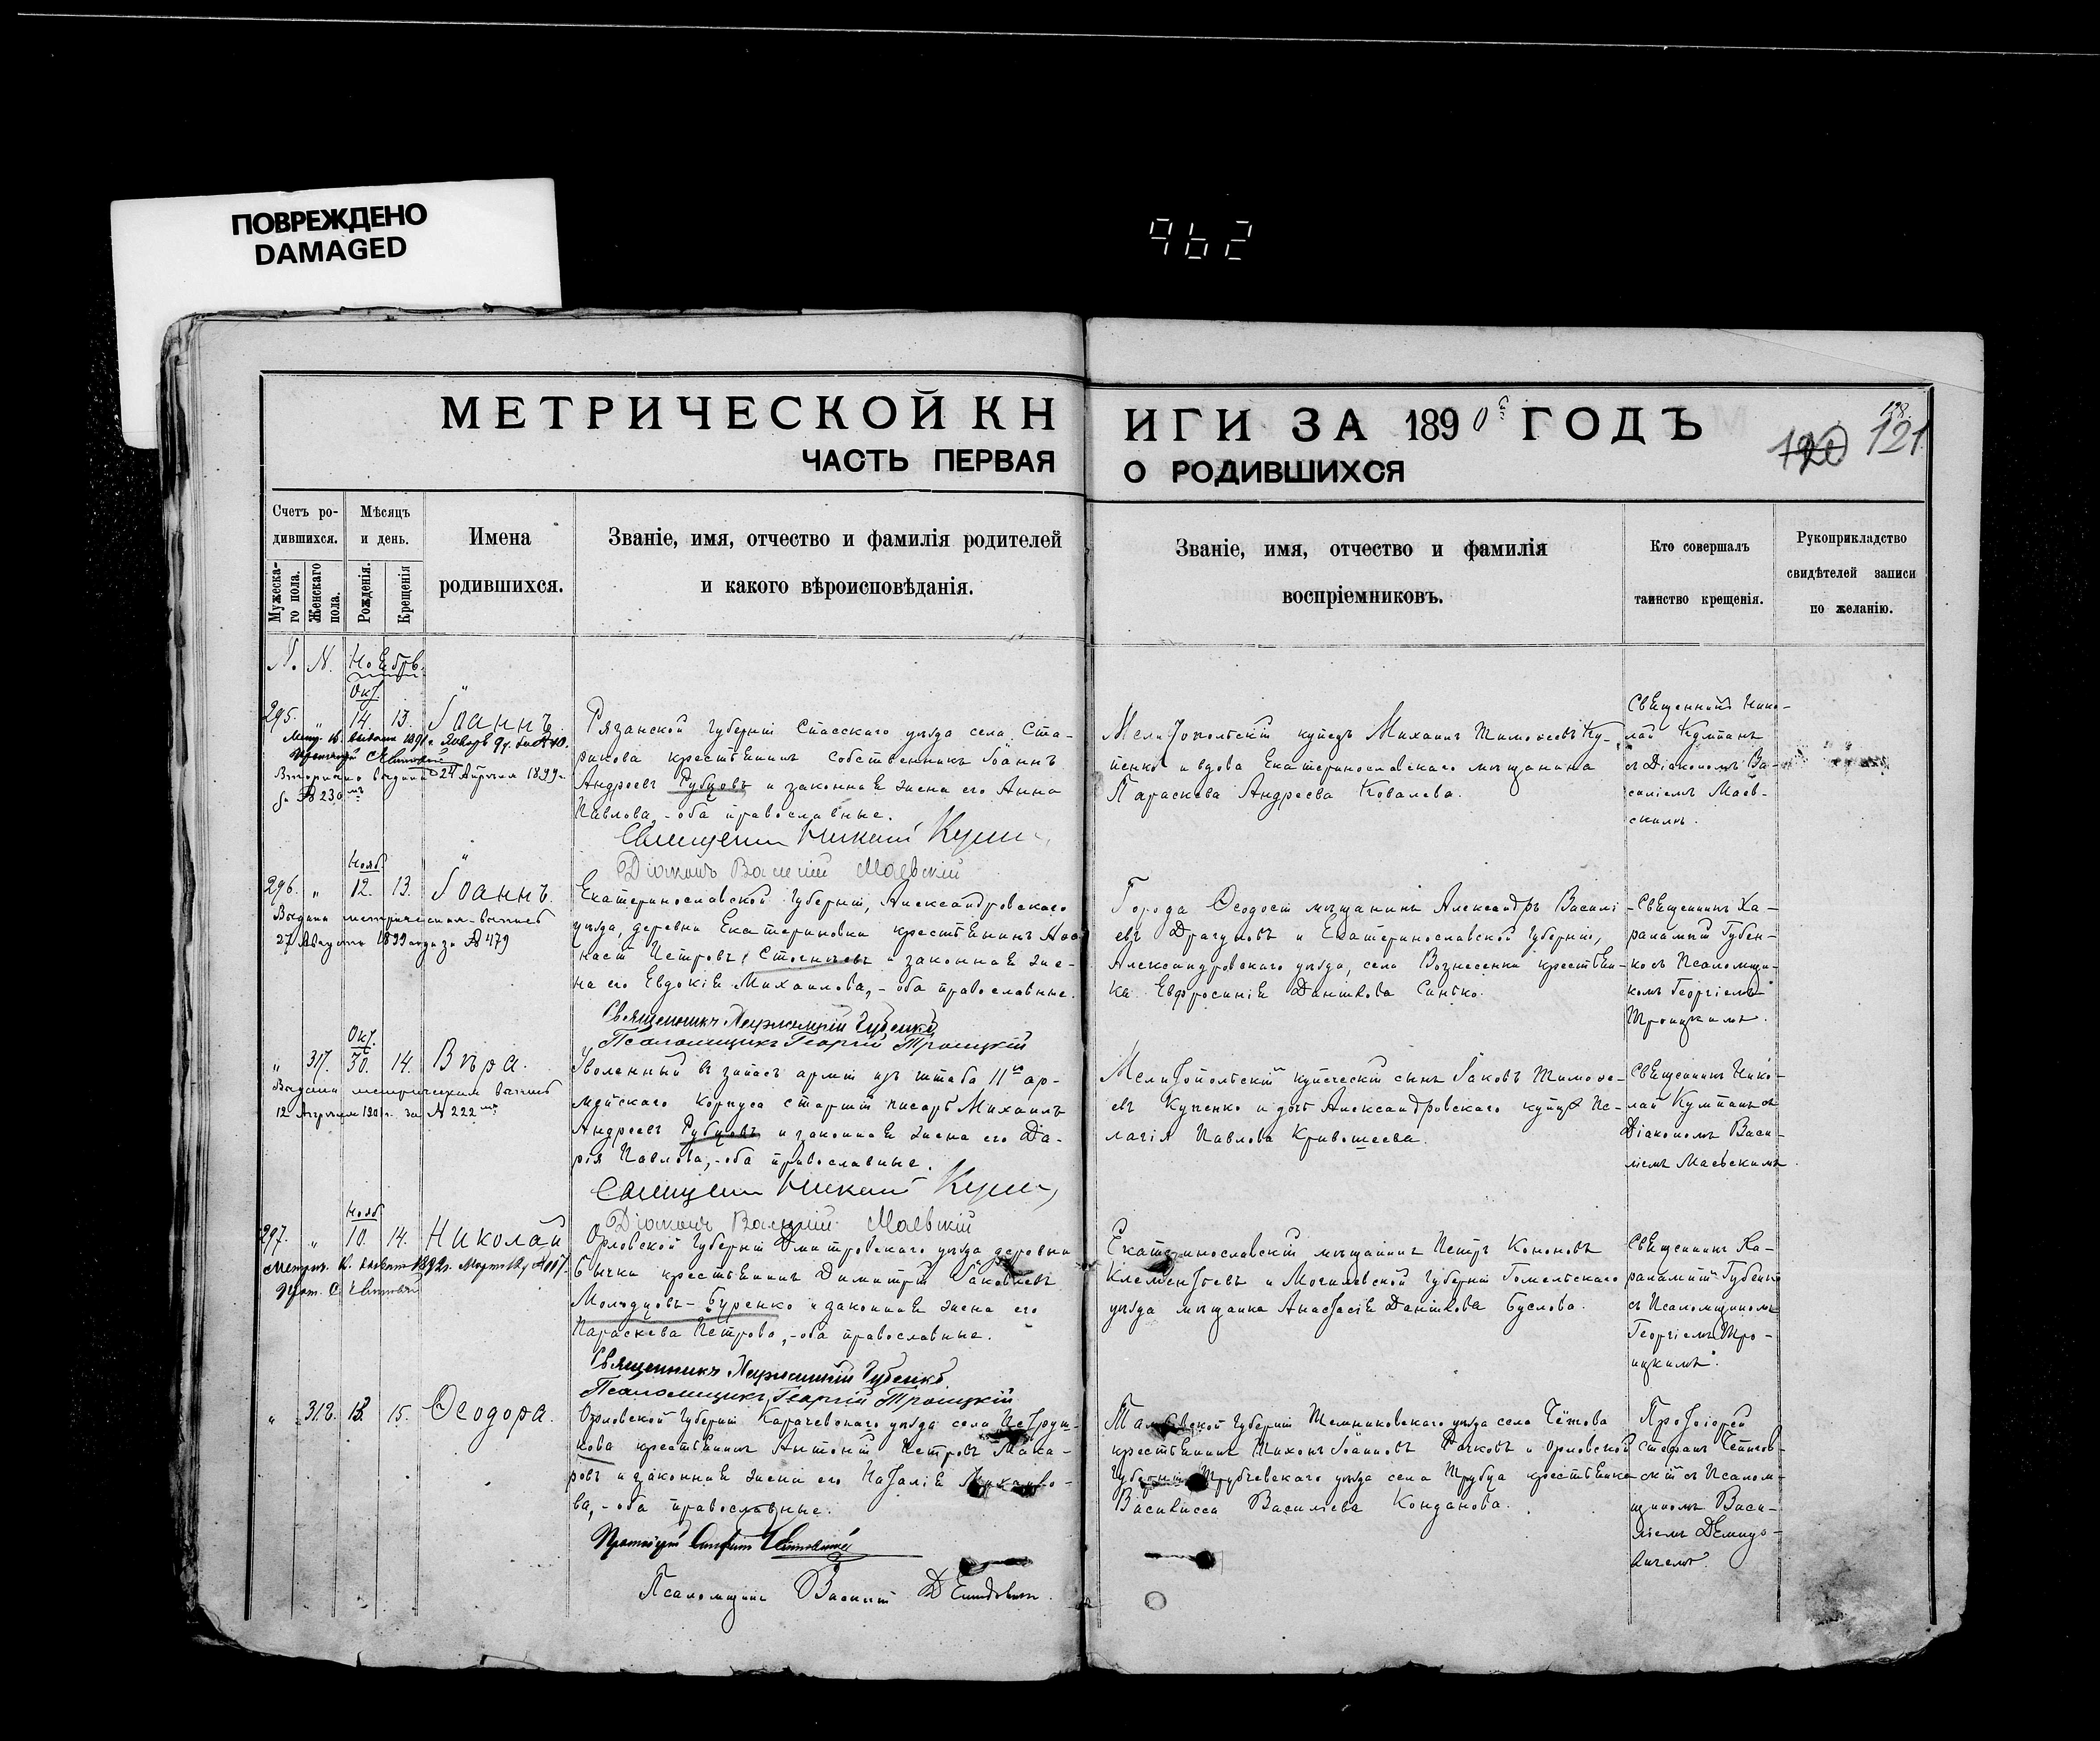 ПОВРЕЖДЕНО
DAMAGED
962
МЕТРИЧЕСКОЙ КН
ИГИ ЗА 1890й ГОДЪ
121
ЧАСТЬ ПЕРВАЯ
О РОДИВШИХСЯ
Счетъ ро-
дившихся.
Мужеска-
го пола.
Женскаго
пола.
Мѣсяцъ
и день.
Рожденія.
Крещенія
Имена
родившихся.
Званіе, имя, отчество и фамилія родителей
и какого вѣроисповѣданія.
Званіе, имя, отчество и фамилія
воспріемниковъ.
Кто совершалъ
таинство крещенія.
Рукоприкладство
свидѣтелей записи
по желанію.
N. N. Ноябрь
Окт.
295. „ 14. 13. Іоаннъ.
24 Апрѣля 1899
за № 230
Рязанской губерніи Спасскаго уѣзда села Ста-
рикова крестьянинъ собственникъ Іоаннъ
Андреевъ Рубцовъ и законная жена его Анна
Павлова, - оба православные.
Діаконъ Василій Маевскій
Мелитопольскій купецъ Михаилъ Тимофеевъ Ку-
пенко и вдова Екатеринославскаго мѣщанина
Параскева Андреева Ковалева.
Священникъ Нико-
лай Кумпанъ
съ Діакономъ Ва-
силіемъ Маев-
скимъ.
Нояб.
296. „ 12. 13. Іоаннъ.
Выдана метрическая выпись
27 Августа 1899 года за № 479
Екатеринославской губерніи, Александровскаго
уѣзда, деревни Екатериновки крестьянинъ Афа
насій Петровъ и законная же-
на его Евдокія Михаилова, - оба православные.
Священникъ Харлампій Губенко
Псаломщикъ Георгій Троицкій
Города Ѳеодосіи мѣщанинъ Александръ Василі
евъ Драгуновъ и Екатеринославской губерніи,
Александровскаго уѣзда, села Вознесенки крестьян-
ка Евфросинія Даніилова Синько.
Священникъ Ха-
раламній Губен-
ко съ Псаломщи-
комъ Георгіемъ
Троицкимъ.
Окт.
„ 317. 30. 14. Вѣра.
Выдана метрическая выпись
12 Апрѣля 1901 г. за № 222
Уволенный въ запасъ арміи изъ штаба 11го ар-
мейскаго корпуса старшій писарь Михаилъ
Андреевъ Рубцовъ и законная жена его Да-
рія Павлова, - оба православные.
Діаконъ Василій Маевскій
Мелитопольскій купеческій сынъ Іаковъ Тимофе-
евъ Купенко и дочь Александровскаго купца Пе-
лагія Павлова Кривошеева.
Священникъ Нико-
лай Кумпанъ съ
Діакономъ Васи-
ліемъ Маевскимъ.
Нояб.
297. „ 10. 14. Николай
Орловской губерніи Дмитровскаго уѣзда деревни
Бычки крестьянинъ Димитрій Іаковлевъ
Молодцовъ-Буренко и законная жена его
Параскева Петрова, - оба православные.
Священникъ Харлампій Губенко
Псаломщикъ Георгій Троицкій
Екатеринославскій мѣщанинъ Петръ Кононовъ
Клементьевъ и Могилевской губерніи Гомельскаго
уѣзда мѣщанка Анастасія Даніилова Буслова.
Священникъ Ха-
раламній Губенко
съ Псаломщикомъ
Георгіемъ Тро-
ицкимъ.
„ 318. 13. 15. Ѳеодора.
Орловской губерніи Карачевскаго уѣзда села Петруш-
кова крестьянинъ Антоній Петровъ Мака-
ровъ и законная жена его Наталія Михаило-
ва, - оба православные.
Псаломщикъ Василій Демидовичъ.
Тамбовской губерніи Темниковскаго уѣзда села
крестьянинъ Тихонъ Іоанновъ и Орловской
губерніи Трубчевскаго уѣзда села крестьянка
Василисса Василіева Конданова.
Протоіерей
Стефанъ
съ Псалом-
щикомъ Васи-
ліемъ Демидо-
вичемъ.